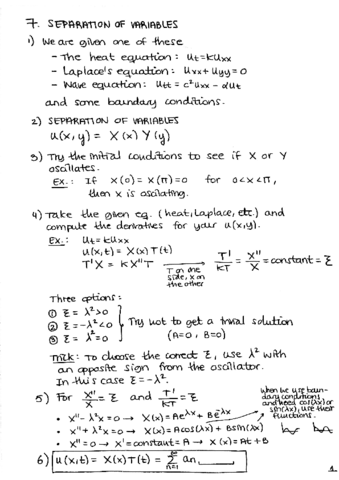 7. SEPARATION OF VARIABLES
1) We are given one of these
- The heat equation: ut = kuxx
- Laplace's equation: uxx + uyy = 0
- Wave equation: utt = c²uxx - αut
and some boundary conditions.
2) SEPARATION OF VARIABLES
u(x,y) = X(x) Y(y)
3) Try the initial conditions to see if X or Y
oscillates.
Ex.: If X(0) = X(π) = 0 for 0<x<π,
then x is oscilating.
4) Take the given eq. (heat, Laplace, etc.) and
compute the derivatives for your u(x,y).
Ex.: ut = kuxx
u(x,t) = X(x) T(t)
T'X = KX''T → T'/KT = X''/X = constant = Ɛ
T on one
side, x on
the other
Three options:
① Ɛ = λ² > 0
② Ɛ = -λ² < 0
③ Ɛ = λ² = 0
Try not to get a trivial solution
(A=0, B=0)
Trick: To choose the correct Ɛ, use λ² with
an opposite sign from the oscillator.
In this case Ɛ = -λ².
5) For X''/X = Ɛ and T'/KT = Ɛ
when we use boun-
dary conditions
and need cos(λx) or
sin(λx), use their
functions.
• X'' - λ²x = 0 → X(x) = Ae^λx + Be^λx
• X'' + λ²x = 0 → X(x) = Acos(λx) + Bsin(λx)
• X'' = 0 → X' = constant = A → X(x) = At + B
6) u(x,t) = X(x) T(t) = ∞Σn=1 an
1